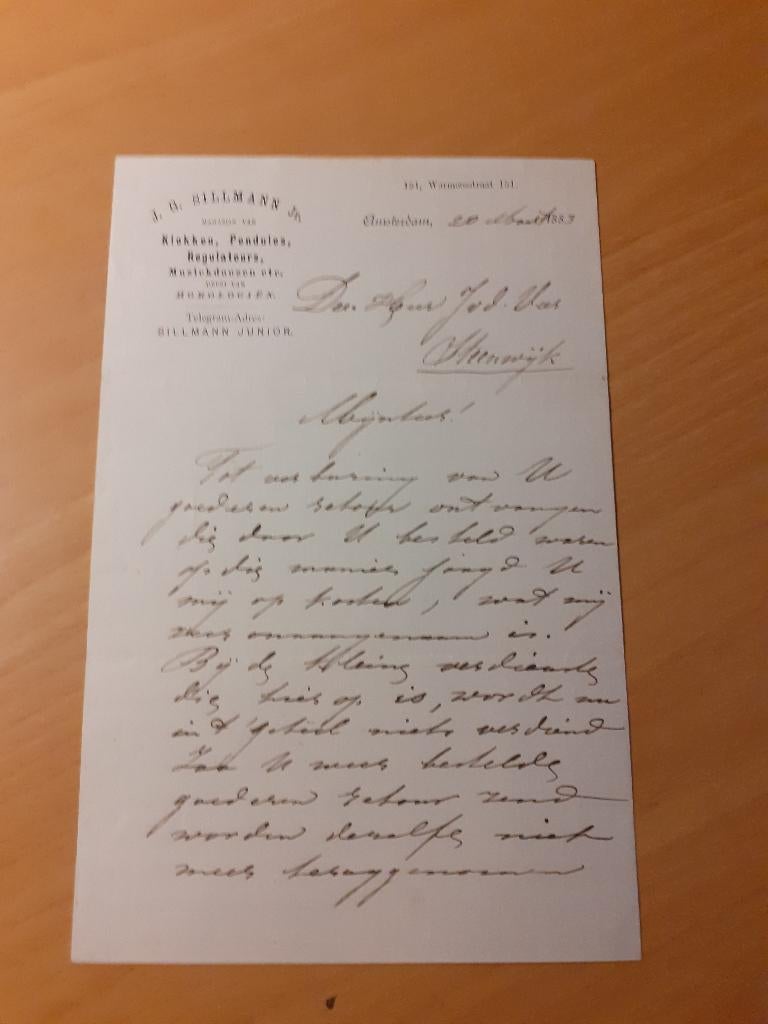 J. G. SILLMANN Jr.
MAGAZIJN VAN
Klokken, Pendules,
Regulateurs,
Muziekdoozen etc.
HOROLOGIEN.
Telegram-Adres:
SILLMANN JUNIOR.
151, Warmoesstraat 151.
Amsterdam, 20 Maart 1883
Den Heer Jvd. Vas
Steenwijk
Mijnheer!
Tot verbazing van U
goederen retour ontvangen
die door U besteld waren
op die manier jaagd U
mij op kosten, wat mij
zeer onaangenaam is.
Bij de kleine verdienste
die hier op is, wordt nu
in 't geheel niets verdiend
Zoo U weer bestelde
goederen retour zend
worden dezelfe niet
meer teruggenomen